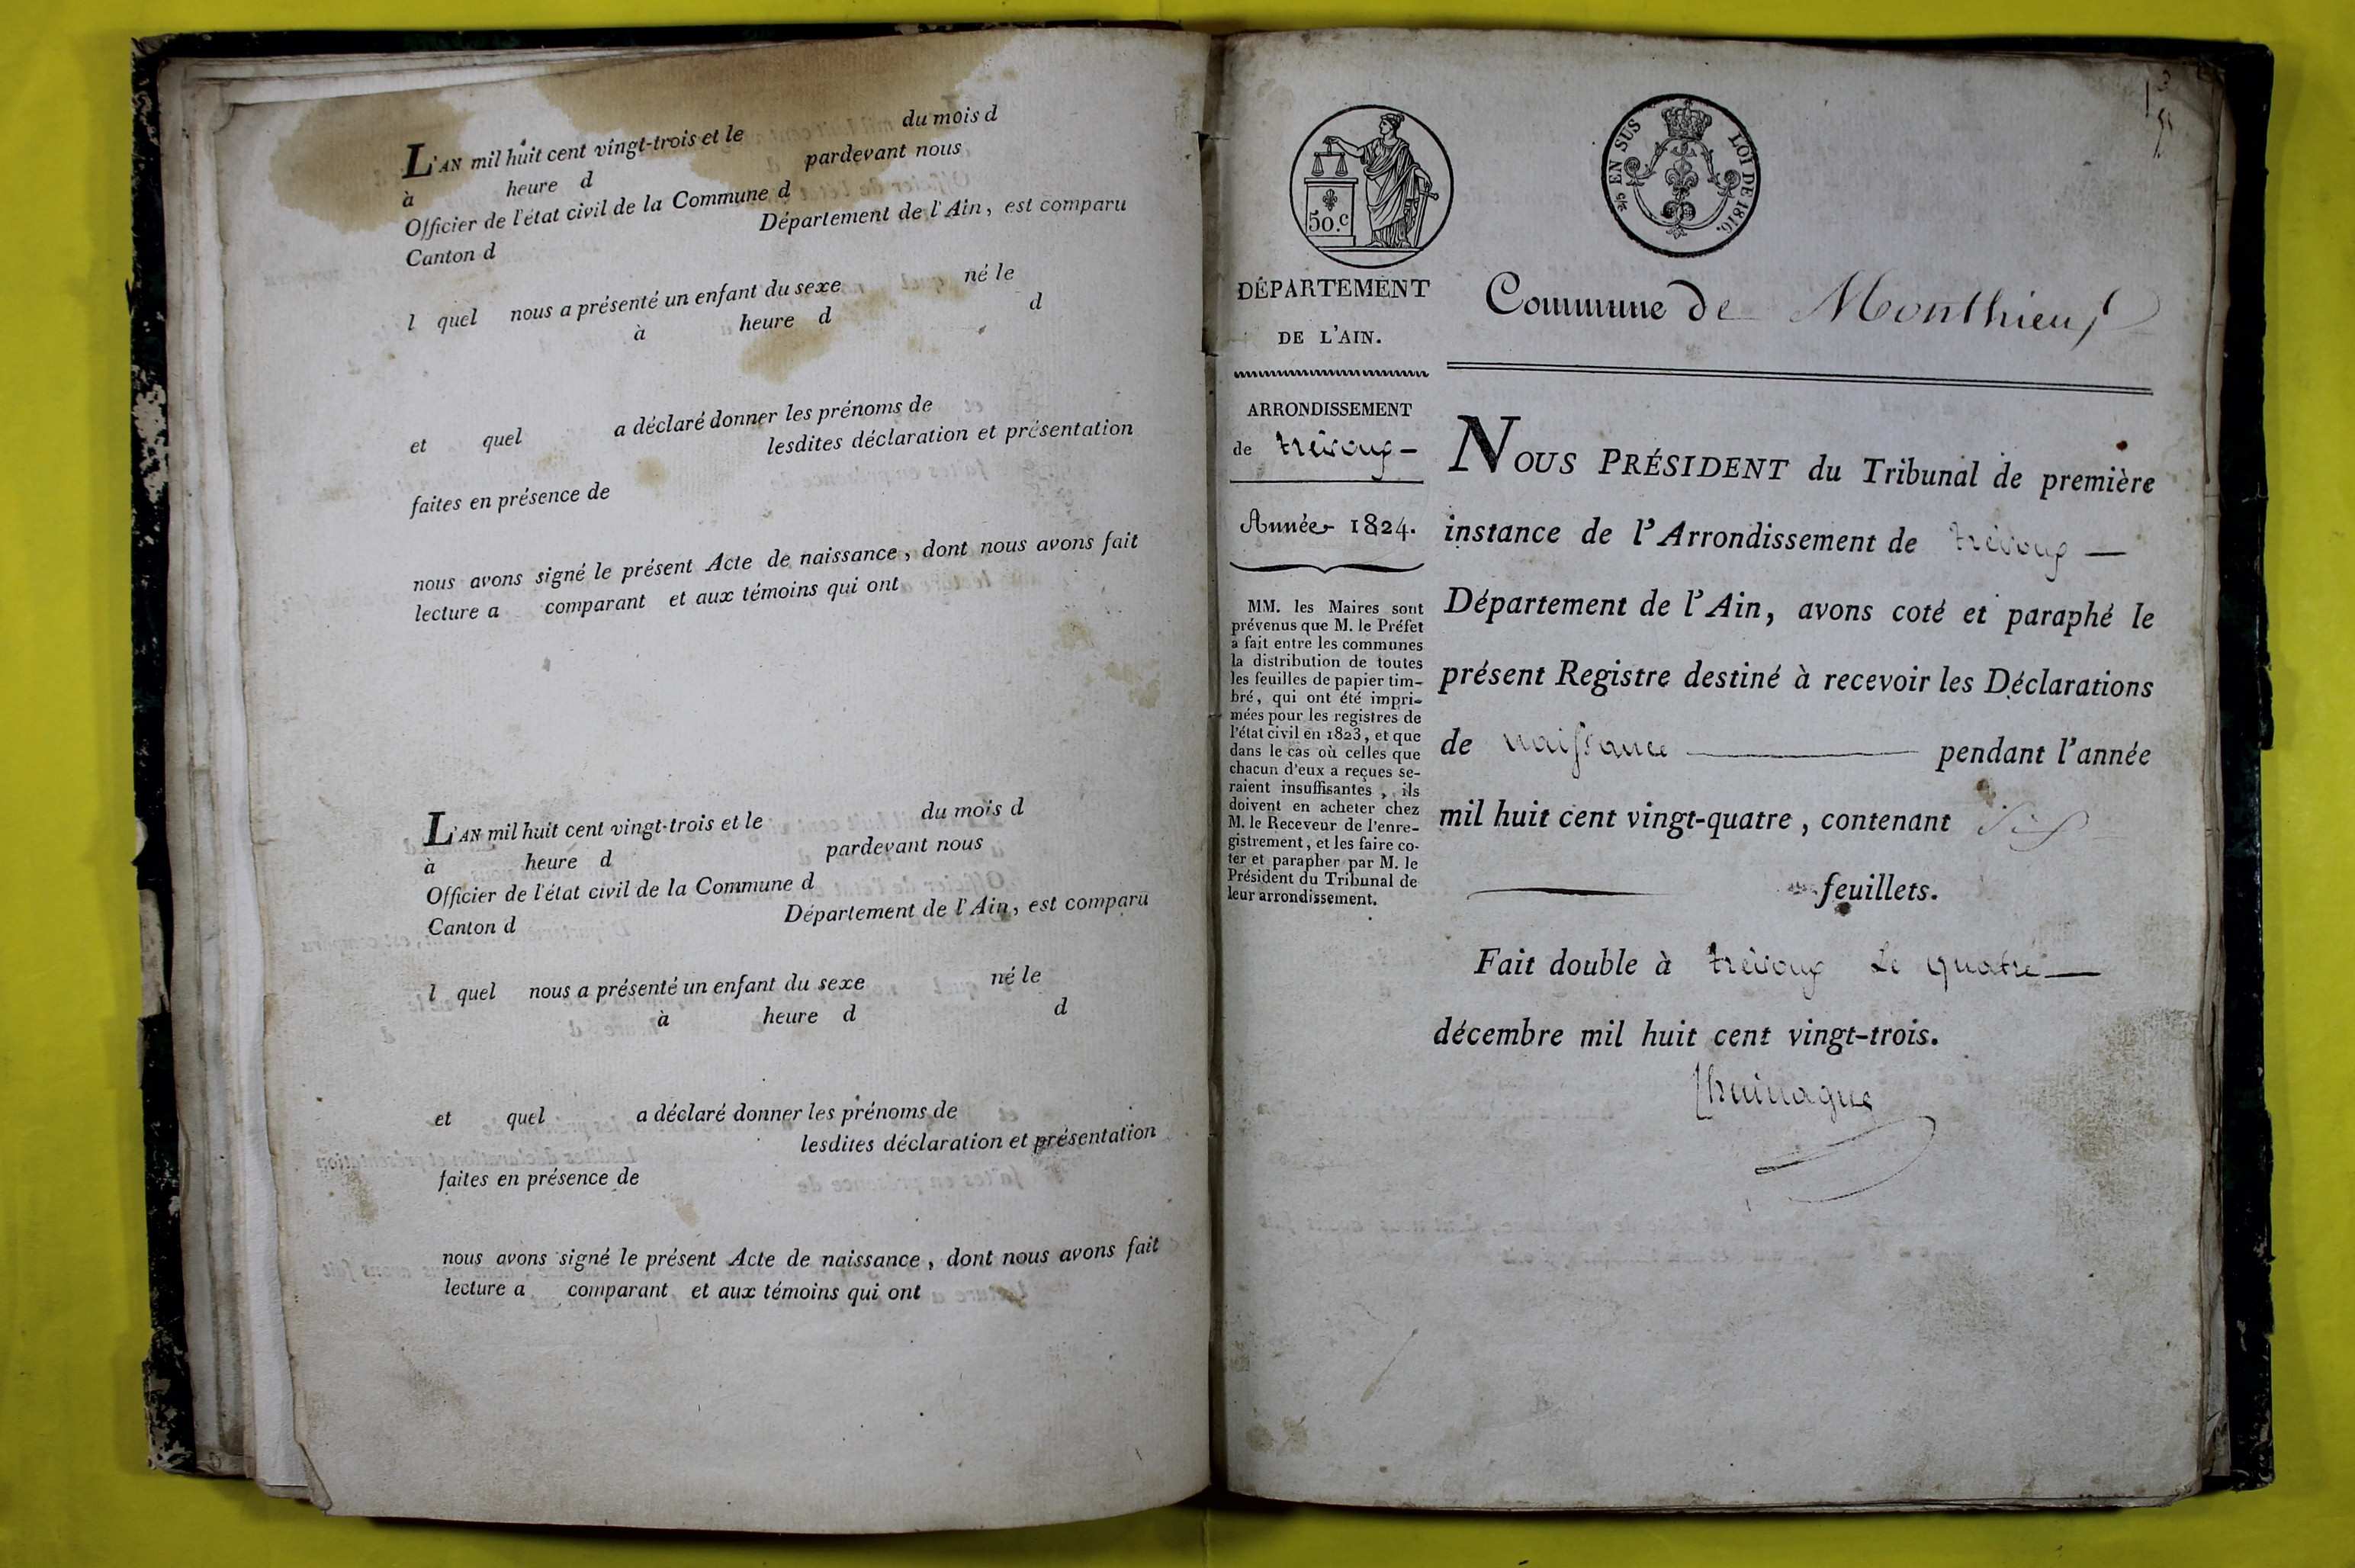 L'AN mil huit cent vingt-trois et le du mois d
à heure d pardevant nous
Officier de l'état civil de la Commune d
Canton d Département de l'Ain, est comparu
l quel nous a présenté un enfant du sexe né le
à heure d d
et quel a déclaré donner les prénoms de
lesdites déclaration et présentation
faites en présence de
nous avons signé le présent Acte de naissance, dont nous avons fait
lecture a comparant et aux témoins qui ont
L'AN mil huit cent vingt-trois et le du mois d
à heure d pardevant nous
Officier de l'état civil de la Commune d
Canton d Département de l'Ain, est comparu
l quel nous a présenté un enfant du sexe né le
à heure d d
et quel a déclaré donner les prénoms de
lesdites déclaration et présentation
faites en présence de
nous avons signé le présent Acte de naissance, dont nous avons fait
lecture a comparant et aux témoins qui ont
50.c
EN SUS LOI DE 1816.
DÉPARTEMENT
DE L'AIN.
ARRONDISSEMENT
de trévoux
Année 1824.
MM. les Maires sont
prévenus que M. le Préfet
a fait entre les communes
la distribution de toutes
les feuilles de papier tim-
bré, qui ont été impri-
mées pour les registres de
l'état civil en 1823, et que
dans le cas où celles que
chacun d'eux a reçues se-
raient insuffisantes, ils
doivent en acheter chez
M. le Receveur de l'enre-
gistrement, et les faire co-
ter et parapher par M. le
Président du Tribunal de
leur arrondissement.
Commune de Monthieux
NOUS PRÉSIDENT du Tribunal de première
instance de l'Arrondissement de trévoux —
Département de l'Ain, avons coté et paraphé le
présent Registre destiné à recevoir les Déclarations
de naissance — pendant l'année
mil huit cent vingt-quatre, contenant six
feuillets.
Fait double à trévoux Le quatre —
décembre mil huit cent vingt-trois.